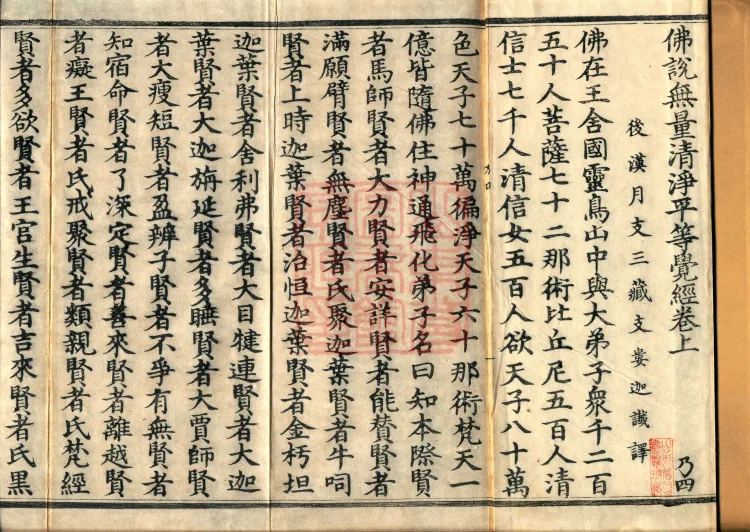 佛說無量清淨平等覺經卷上
乃四
後漢月支三藏支婁迦讖譯
佛在王舍國靈鳥山中與大弟子眾千二百
五十人菩薩七十二那術比丘尼五百人清
信士七千人清信女五百人欲天子八十萬
色天子七十萬徧淨天子六十那術梵天一
億皆隨佛住神通飛化弟子名曰知本際賢
者馬師賢者大力賢者安詳賢者能贊賢者
滿願臂賢者無塵賢者氏聚迦葉賢者牛呞
賢者上時迦葉賢者治恒迦葉賢者金杇坦
迦葉賢者舍利弗賢者大目犍連賢者大迦
葉賢者大迦旃延賢者多睡賢者大賈師賢
者大瘦短賢者盈辨子賢者不爭有無賢者
知宿命賢者了深定賢者善來賢者離越賢
者癡王賢者氏戒聚賢者類親賢者氏梵經
賢者多欲賢者王宮生賢者吉來賢者氏黑